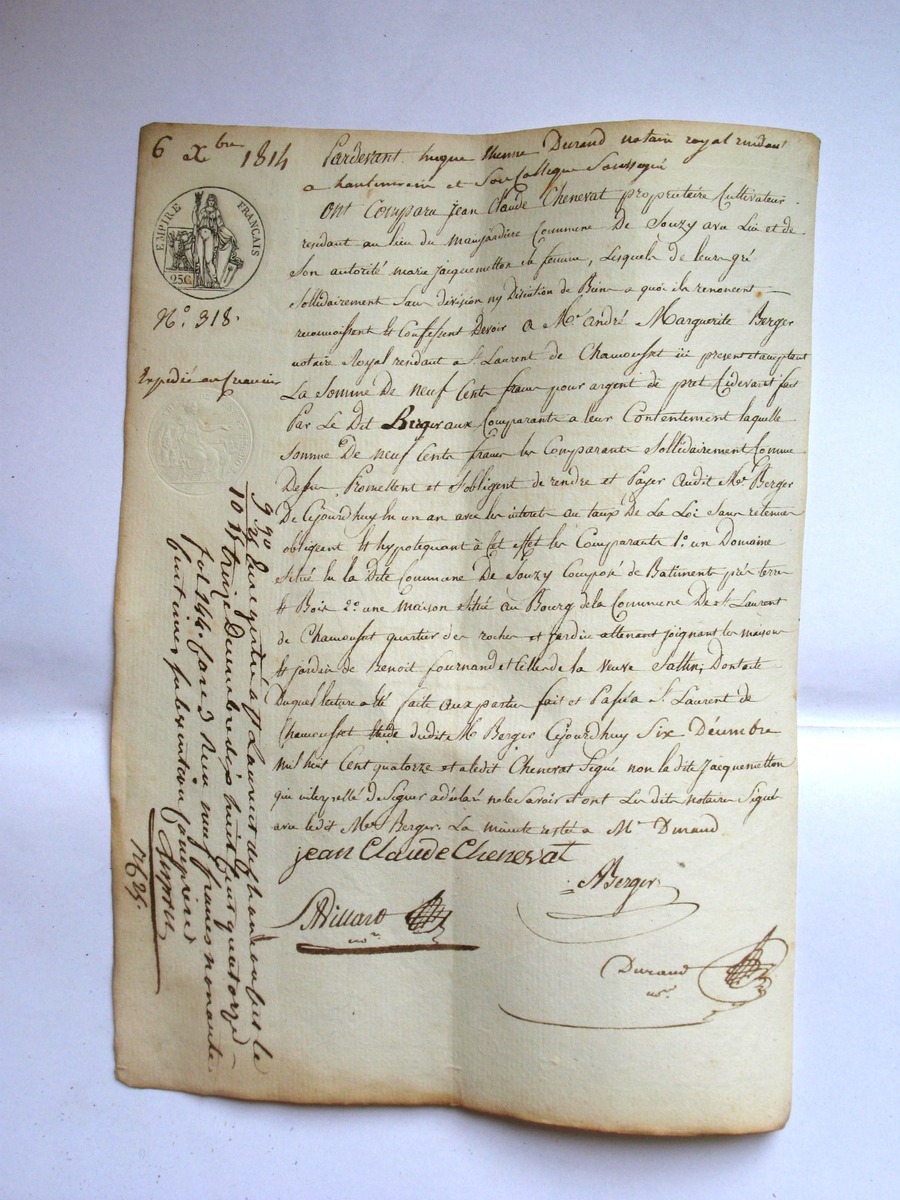 6 Xbre 1814
Pardevant hugue Etienne Durand notaire royal residant
a hauterivoire et Son Collegue Soussigné
Ont Comparu jean Claude Chenevat propriétaire Cultivateur
residant au lieu du Maujardière Commune De Souzy avec Lui et de
Son autorité marie jacquemetton sa femme, Lesquels de leur gré
Sollidairement Sans division ny Discution de Biens a quoi ils renoncent
reconnoissent Et Confessent Devoir a Mr andré Marguerite Berger
notaire Royal residant a St Laurent de Chamousset ici present et acceptant
La Somme De neuf Cents francs pour argent de pret Cidevant fait
Par Le Dit Berger aux Comparants a leur Contentement laquelle
Somme De neuf Cents francs les Comparants Sollidairement Comme
Dessus Promettent et s'obligent de rendre et Payer audit Mr Berger
De Cejourdhuy En un an avec les interets au taux De La Loi Sans retenue
obligeant Et hypotequant à Cet effet les Comparants 1o. un Domaine
Situé En la Dite Commune De Souzy Composé de Batiments prés terres
Et Bois 2o une maison Située au Bourg de la Commune De St Laurent
de Chamousset quartier des roches et jardin attenant joignant les maisons
Et jardin de Benoit fournand et Celle de la Veuve Dont acte
Duquel lecture a été faite aux parties fait et Passé a St Laurent de
Chamousset Etude dudit Mr Berger Cejourdhuy Six Décembre
mil huit Cent quatorze et a ledit Chenevat Signé non la dite Jacquemetton
qui interpellé de Signer a déclaré ne le Savoir et ont Les dits notaires Signé
avec ledit Mr Berger. La minute restée a Me Durand
jean Claude Chenevat
ABerger
Villard
nore.
Durand
nore.
EMPIRE FRANÇAIS
25C
No. 318.
Expedié au Creancier
Enregistré a St Laurent de Chamousset le
treize Decembre dix huit Cent quatorze
fol. 144. Case 2 Reçu neuf francs nonante